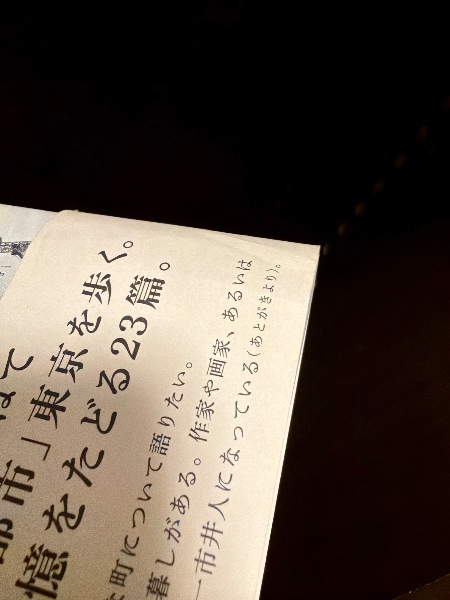 て
市」東京を歩く。
憶をたどる23篇。
町について語りたい。
暮しがある。作家や画家、あるいは
一市井人になっている(あとがきより)。